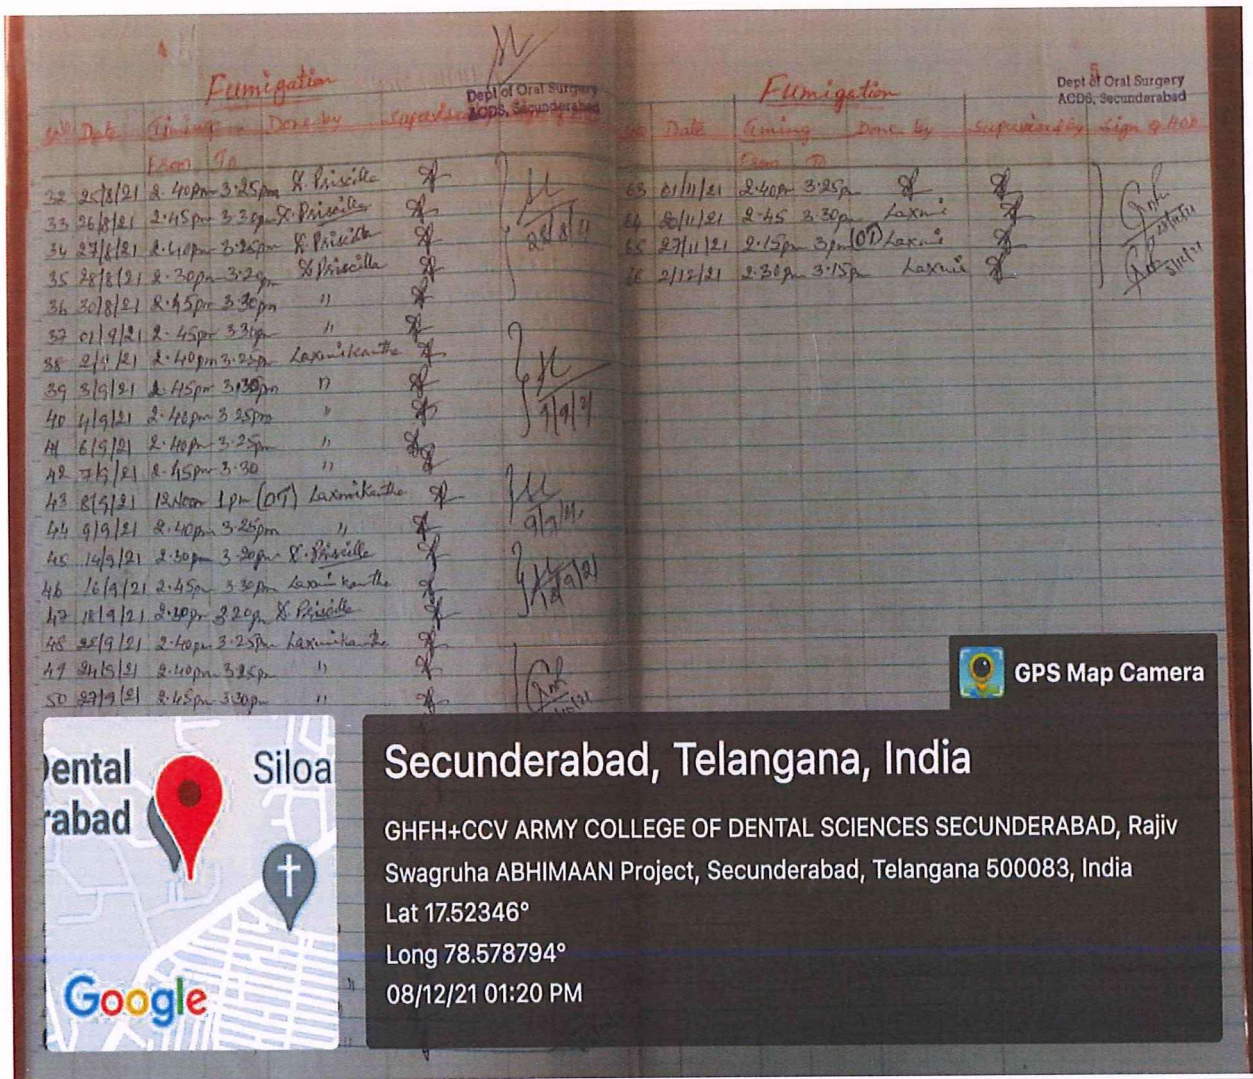 Fumigation
Dept of Oral Surgery
ACDS, Secunderabad
Date Timing Done by
From To
32 25/8/21 2.40pm 3.25pm S. Priscilla
33 26/8/21 2.45pm 3.30pm S. Priscilla
34 27/8/21 2.40pm 3.25pm S. Priscilla
35 28/8/21 2.30pm 3.20pm S. Priscilla
36 30/8/21 2.45pm 3.30pm "
37 01/9/21 2.45pm 3.30pm "
38 2/9/21 2.40pm 3.25pm Laxmikantha
39 3/9/21 2.45pm 3.30pm "
40 4/9/21 2.40pm 3.25pm "
41 6/9/21 2.40pm 3.25pm "
42 7/9/21 2.45pm 3.30 "
43 8/9/21 12Noon 1pm (OT) Laxmikantha
44 9/9/21 2.40pm 3.25pm "
45 14/9/21 2.30pm 3.20pm S. Priscilla
46 16/9/21 2.45pm 3.30pm Laxmikantha
47 18/9/21 3.20pm S. Priscilla
48 2.40pm 3.25pm Laxmikantha
49 2.40pm 3.25pm "
50 27/9/21 2.45pm 3.30pm "
Fumigation
5
Dept of Oral Surgery
ACDS, Secunderabad
Date Timing Done by Supervised by Sign of HOD
From To
63 01/11/21 2.40pm 3.25pm
64 20/11/21 2.45 3.30pm Laxmi
65 27/11/21 2.15pm 3pm (OT) Laxmi
66 2/12/21 2.30pm 3.15pm Laxmi
GPS Map Camera
Dental
rabad
Siloa
Google
Secunderabad, Telangana, India
GHFH+CCV ARMY COLLEGE OF DENTAL SCIENCES SECUNDERABAD, Rajiv
Swagruha ABHIMAAN Project, Secunderabad, Telangana 500083, India
Lat 17.52346°
Long 78.578794°
08/12/21 01:20 PM